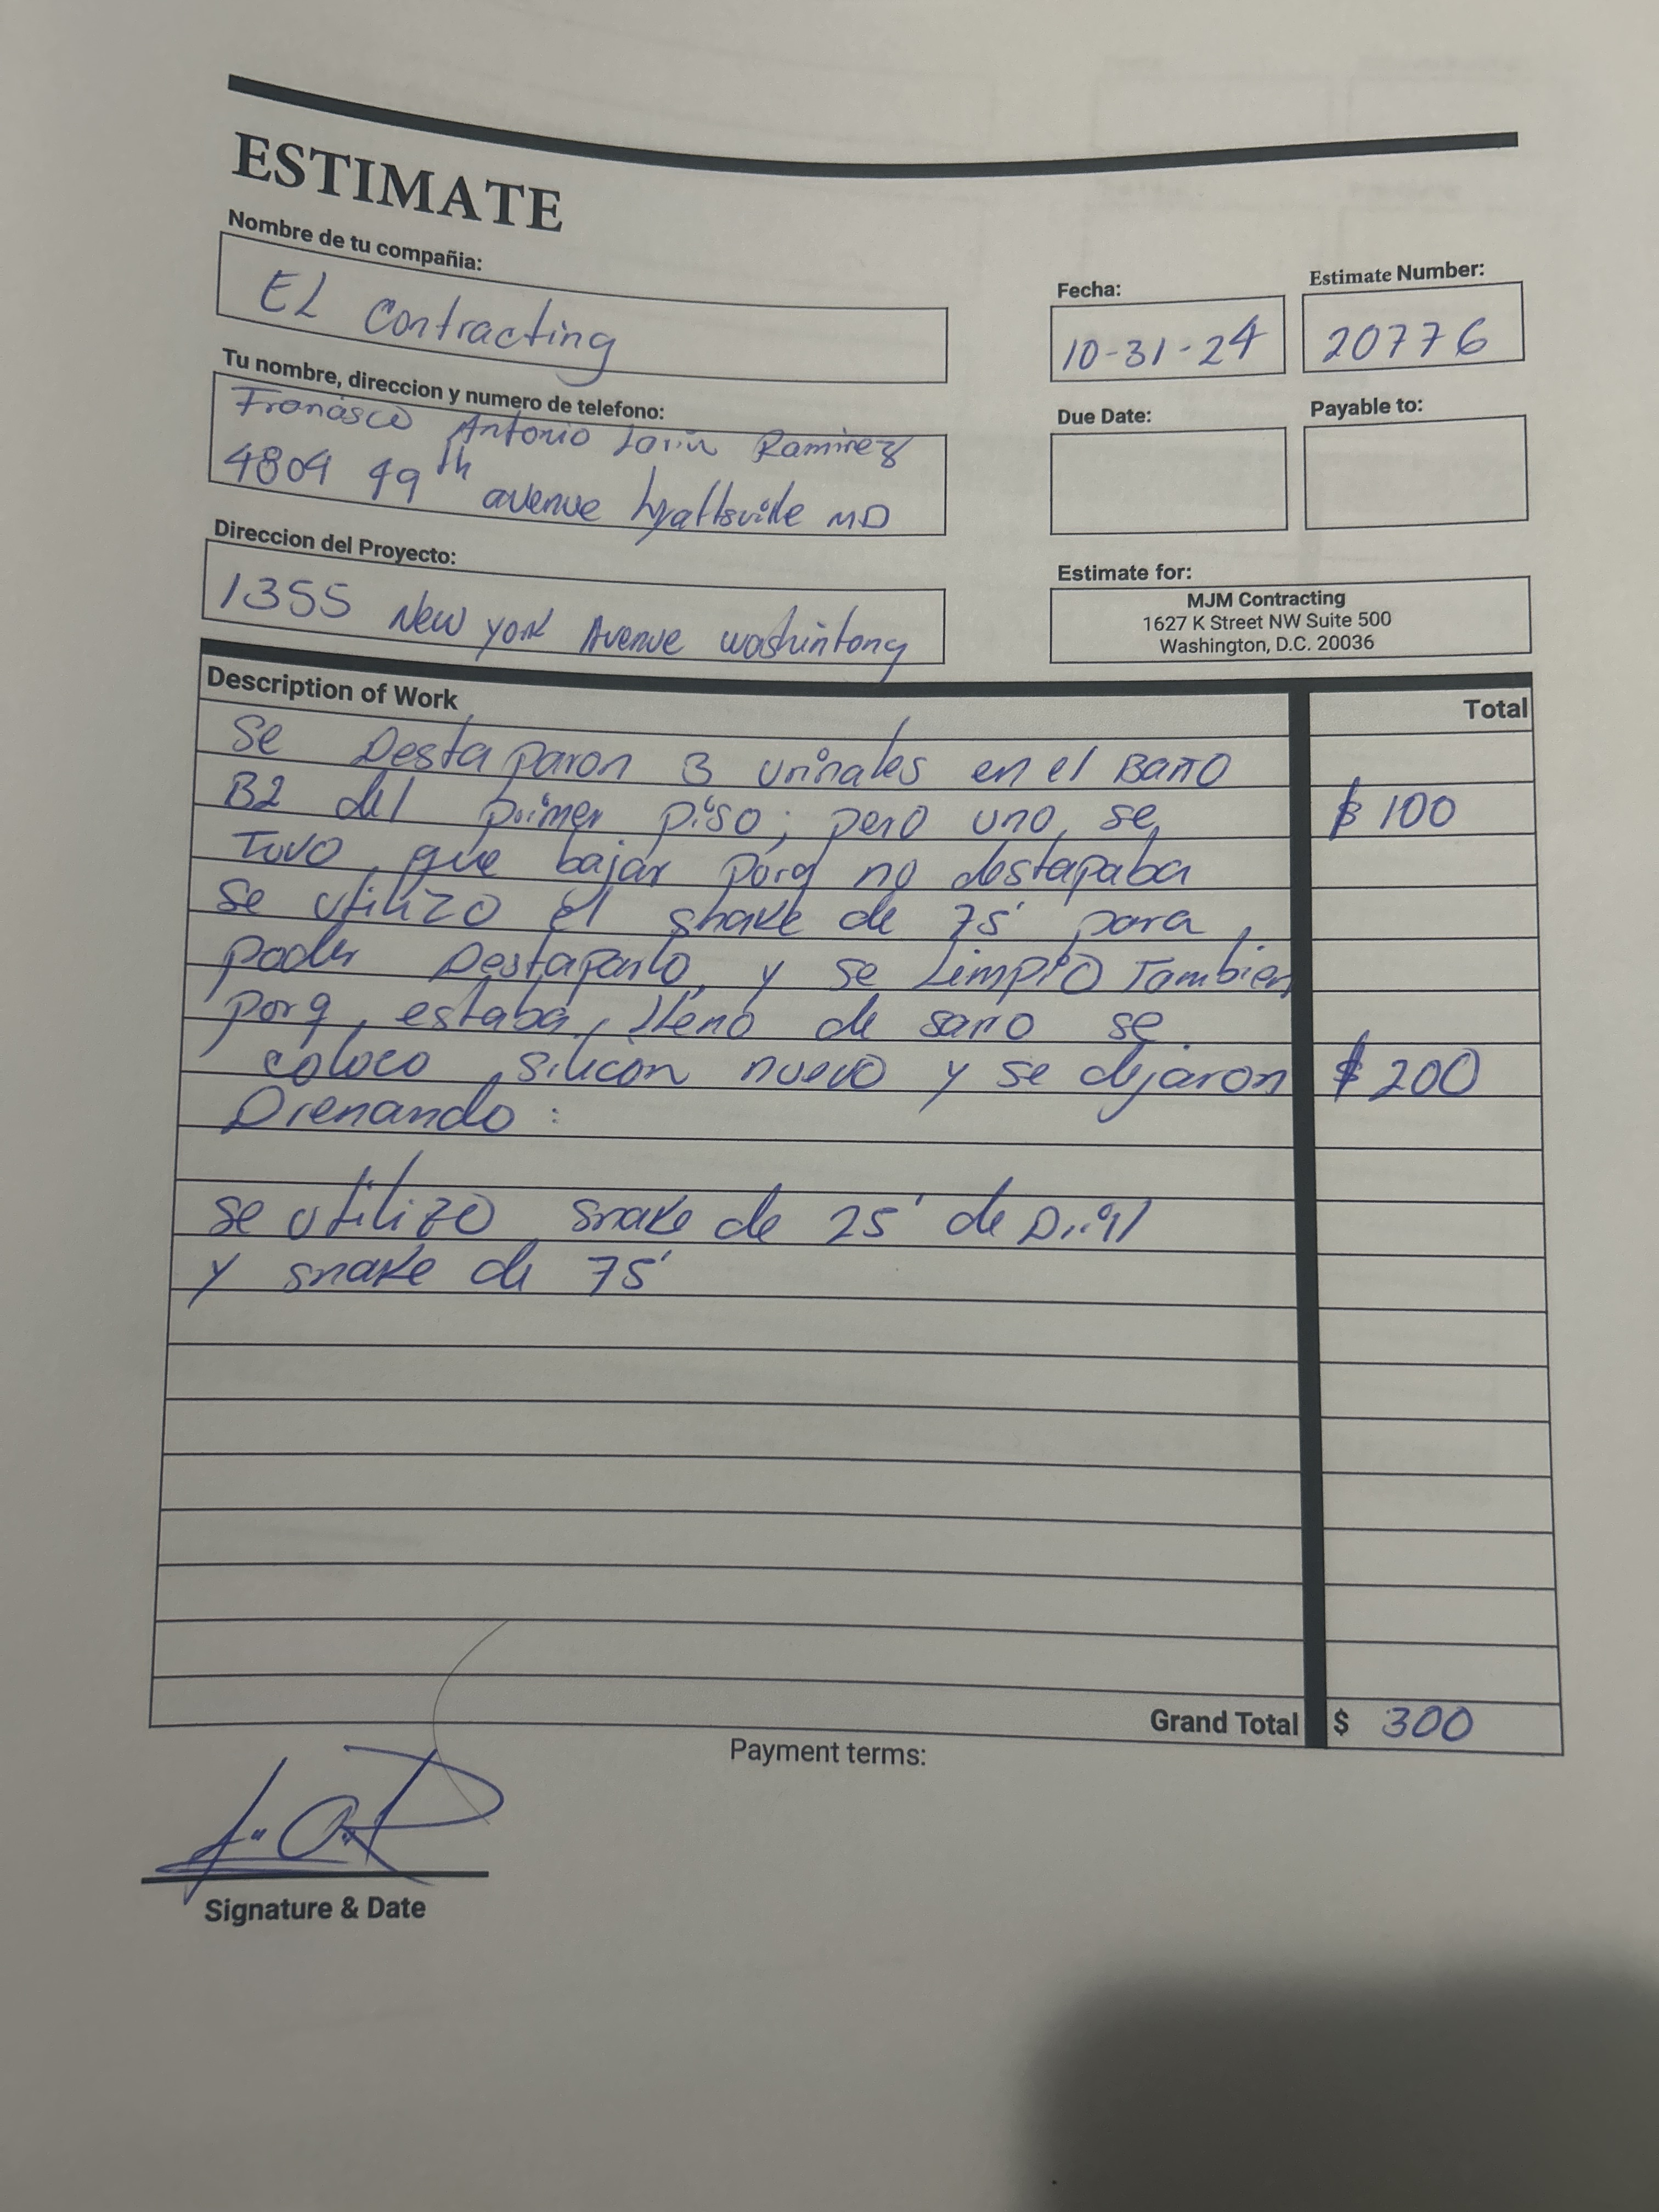 ESTIMATE
Nombre de tu compañia:
EL Contracting
Fecha:
10-31-24
Estimate Number:
20776
Tu nombre, direccion y numero de telefono:
Francisco Antonio Larin Ramirez
4804 49th avenue hyattsville MD
Due Date:
Payable to:
Direccion del Proyecto:
1355 New york Avenue washintong
Estimate for:
MJM Contracting
1627 K Street NW Suite 500
Washington, D.C. 20036
Description of Work Total
Se Destaparon 3 urinales en el Baño
B2 del primer piso; pero uno se $ 100
Tuvo que bajar porq no destapaba
se utilizo el snake de 75' para
poder Destaparlo, y se Limpio Tambien
porq estaba lleno de sarro se
coloco silicon nuevo y se dejaron $ 200
Drenando:
se utilizo snake de 25' de
y snake de 75'
Grand Total $ 300
Payment terms:
Signature & Date